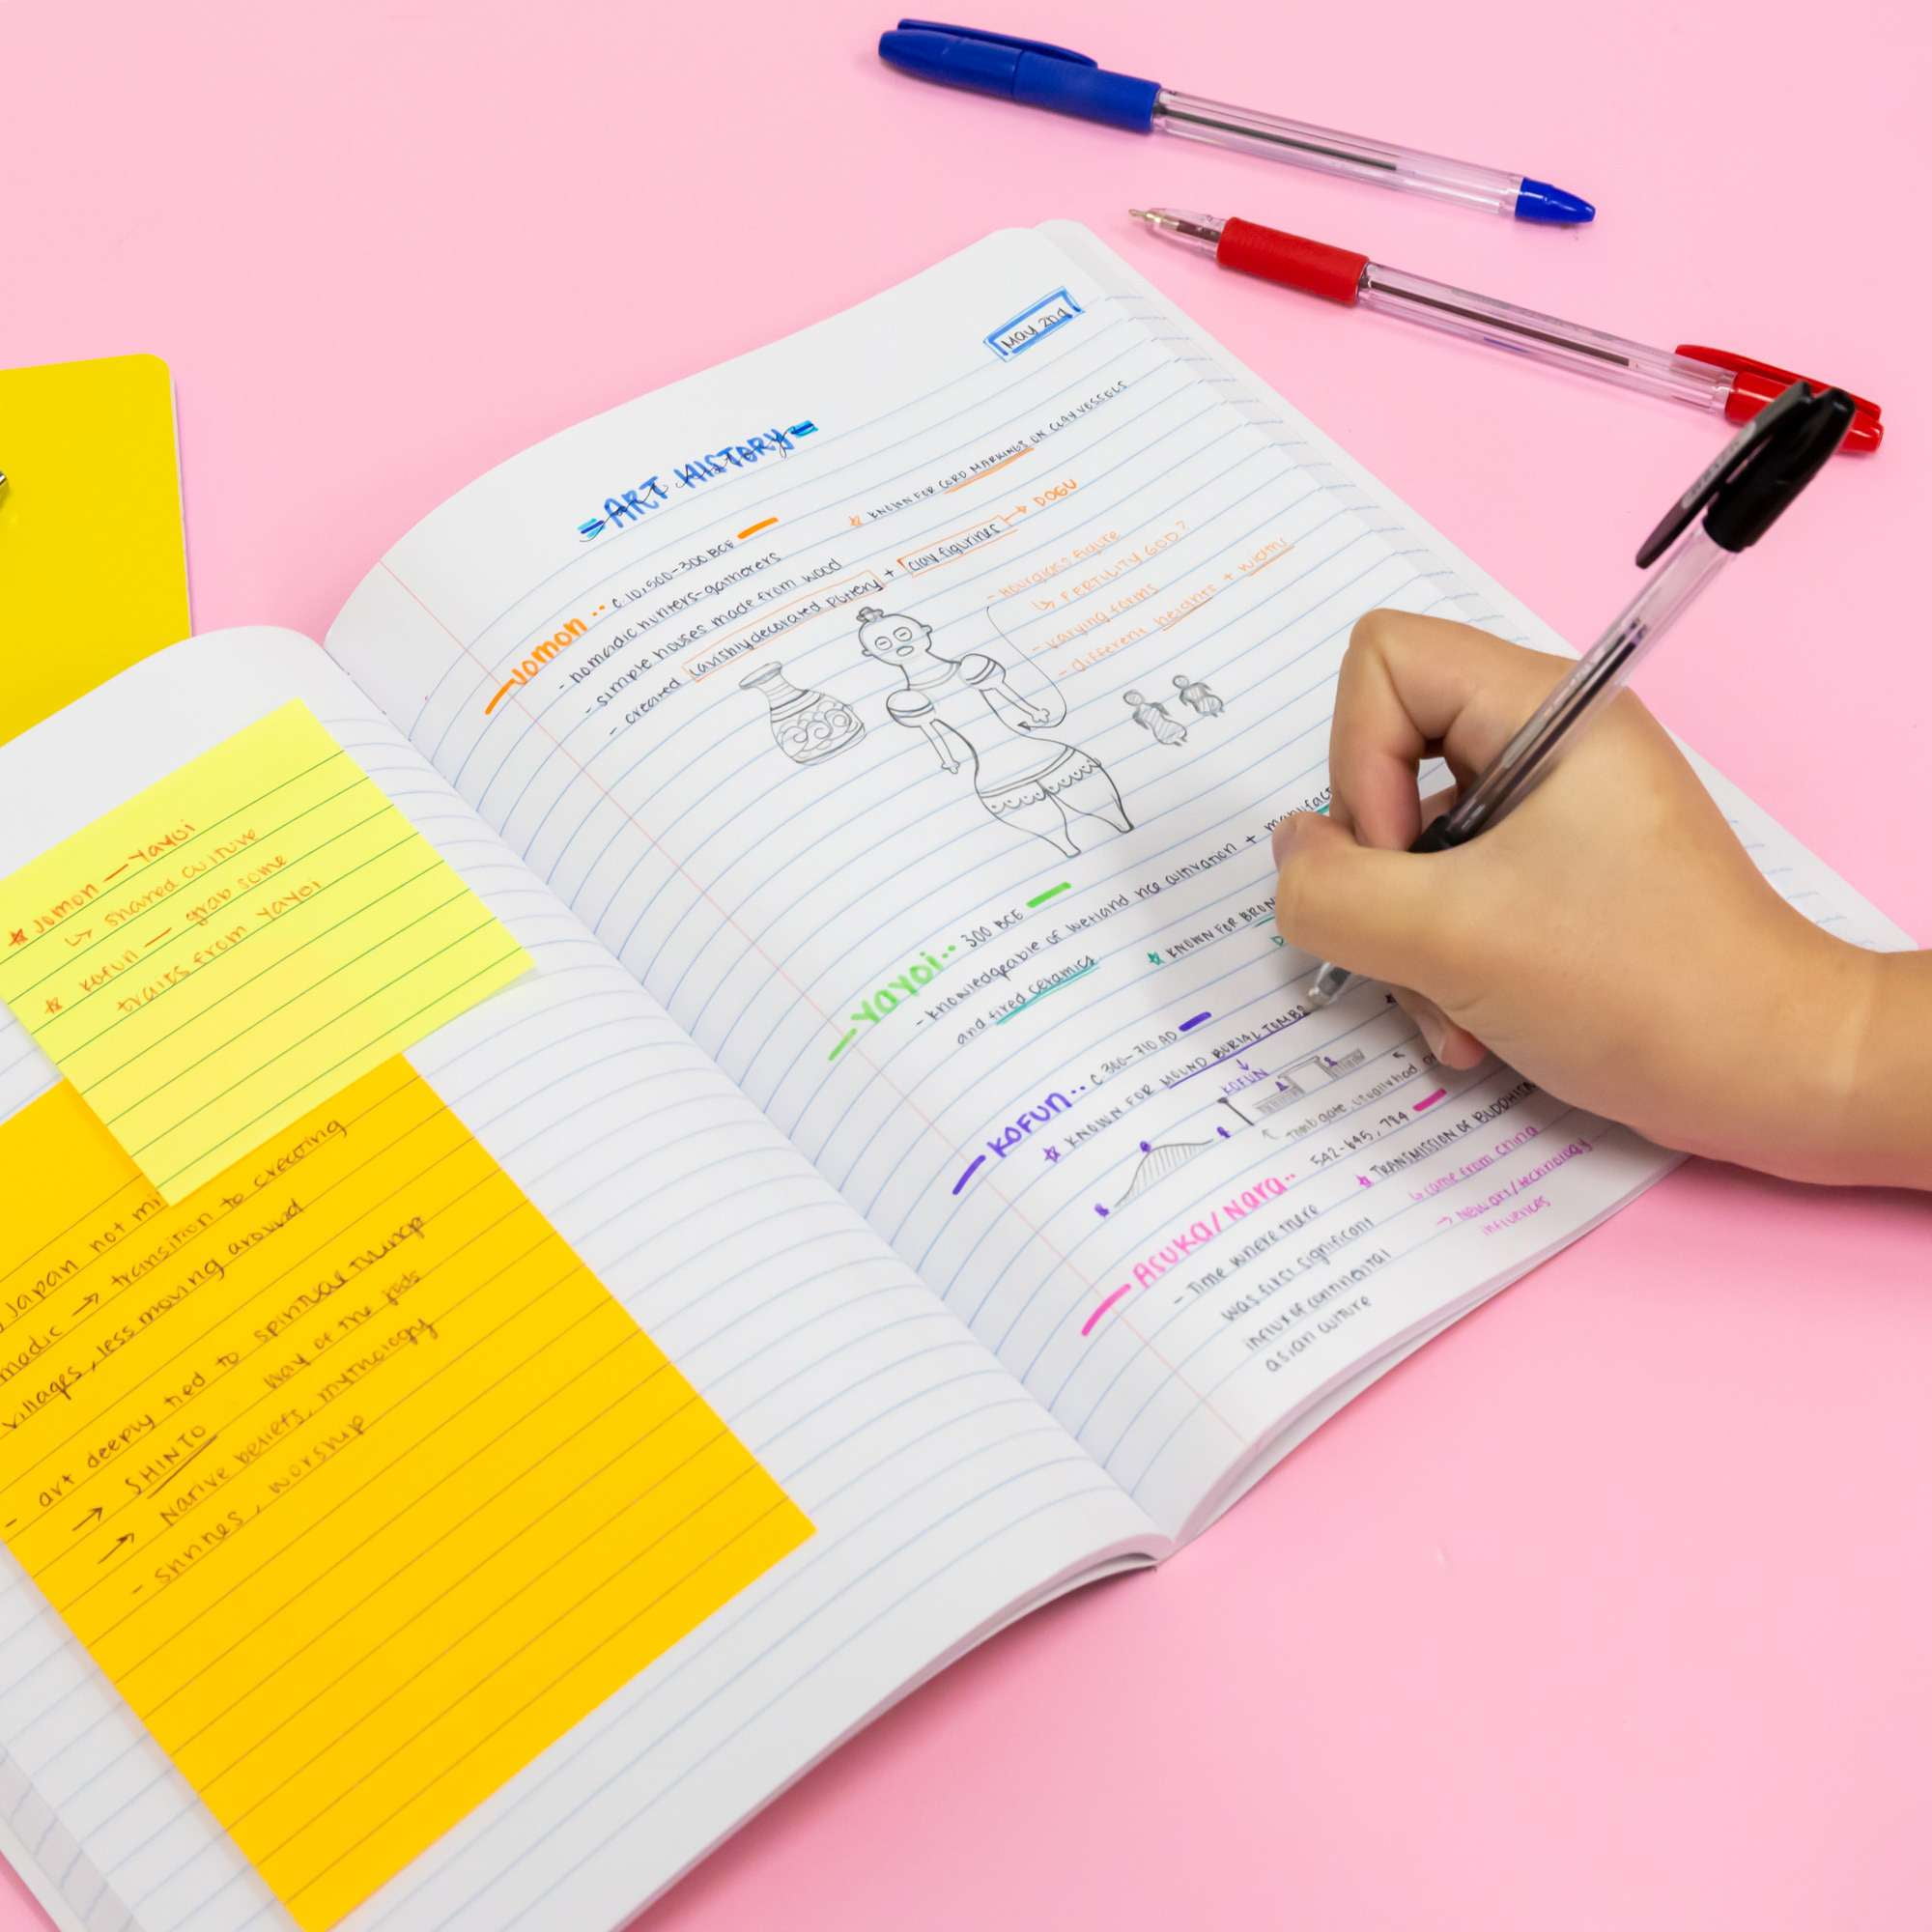 ★ Jomon — Yayoi
↳ shared culture
★ Kofun — grab some
traits from Yayoi
Japan not mi
madic → transition to creating
villages, less moving around
- art deeply tied to spiritual things
→ SHINTO way of the gods
→ Native beliefs, mythology
- shrines, worship
May 2nd
ART HISTORY
Jomon.. C.10,500-300 BCE
★ KNOWN FOR CORD MARKINGS ON CLAY VESSELS
- nomadic hunters-gatherers
- simple houses made from wood
- created lavishly decorated pottery + clay figurines → DOGU
- hourglass figure
↳ FERTILITY GOD?
- varying forms
- different heights + widths
Yayoi.. 300 BCE
- knowledgeable of wetland rice cultivation + manufact
and fired ceramics
★ KNOWN FOR BRON
KOFUN.. C 300-710 AD
★ KNOWN FOR MOUND BURIAL TOMBS
↓
KOFUN
Tomb gate, usually had
Asuka/Nara.. 542-645, 784
- Time where there
was first significant
influx of continental
asian culture
★ TRANSMISSION OF BUDDHISM
↳ came from China
→ New art/technology
influences